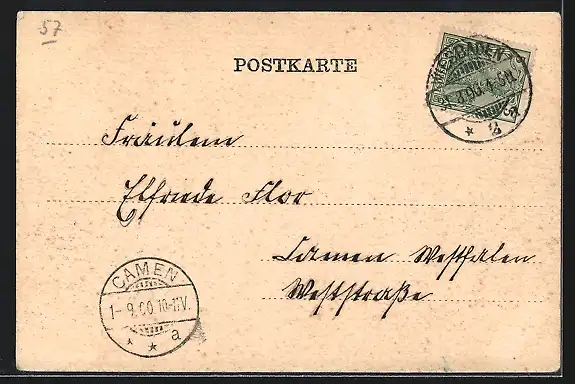 57
POSTKARTE
WIESBADEN
Fräulein
Elfriede Flor
Camen Westfalen
Weststraße
CAMEN
1-9.00.10-11V.
* * a